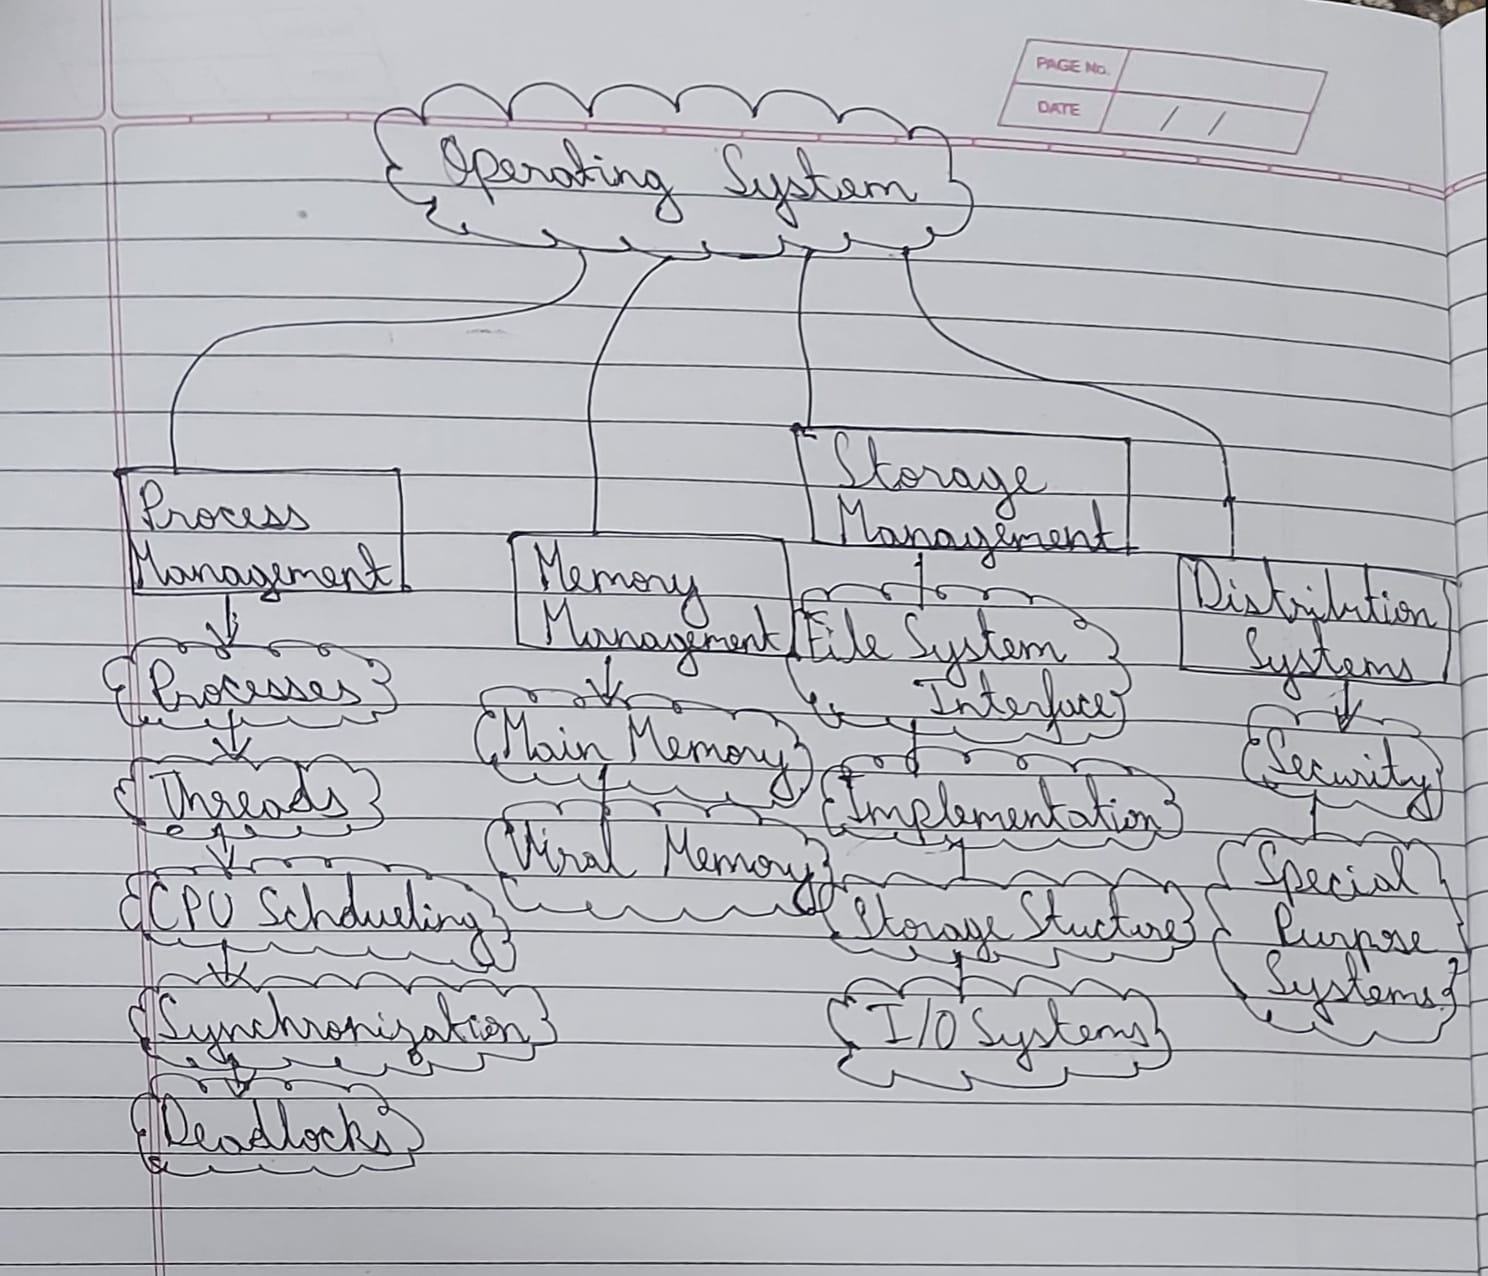 PAGE No.
DATE / /
Operating System
Process
Management
Processes
Threads
CPU Schdueling
Synchronization
Deadlocks
Memory
Management
Main Memory
Viral Memory
Storage
Management
File System
Interface
Implementation
Storage Stucture
I/O Systems
Distribution
Systems
Security
Special
Purpose
Systems